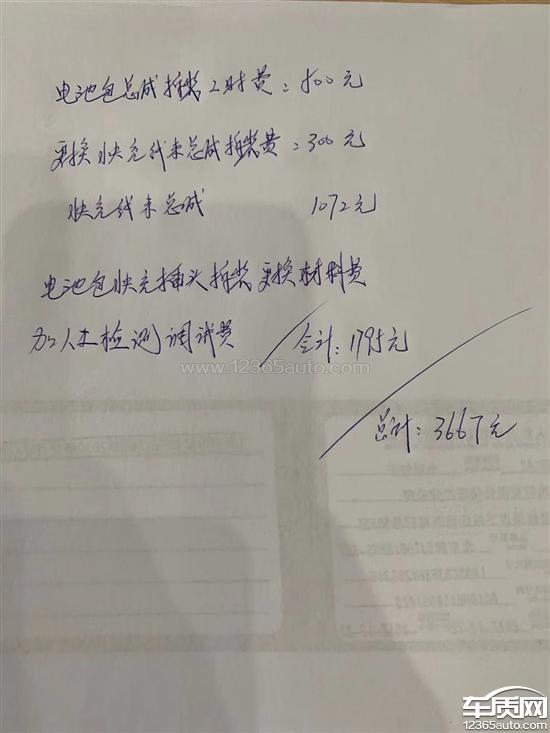 电池包总成拆装工时费:500元
更换快充线束总成拆装费:300元
快充线束总成 1072元
电池包快充插头拆装更换材料费
加人工检测调试费 合计:1795元
www.12365auto.com
总计:3667元
车质网
12365auto.com